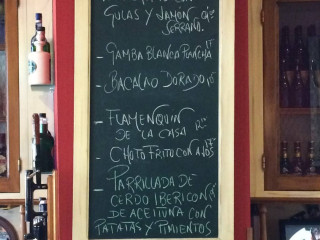 GULAS Y JAMON
SERRANO
- GAMBA BLANCA PLANCHA
- BACALAO DORADO
- FLAMENQUIN
DE LA CASA
- CHOTO FRITO CON AJOS
- PARRILLADA DE
CERDO IBERICO
DE ACEITUNA CON
PATATAS Y PIMIENTOS